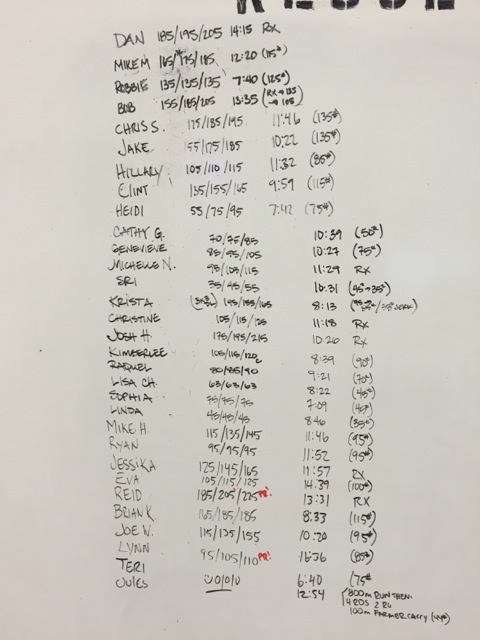 DAN 185/195/205 14:15 RX
MIKE M 165/175/185 12:20 (115#)
ROBBIE 135/135/135 7:40 (125#)
BOB 155/185/205 13:35 (RX → 135 → 105)
CHRIS S. 175/185/195 11:46 (135#)
JAKE 155/175/185 10:22 (135#)
HILLARY 105/110/115 11:32 (85#)
CLINT 135/155/165 9:59 (115#)
HEIDI 55/75/95 7:42 (75#)
CATHY G. 70/75/85 10:39 (50#)
GENEVIEVE 85/95/105 10:27 (75#)
MICHELLE N. 95/105/115 11:29 RX
SRI 35/45/55 10:31 (45→35#)
KRISTA 145/155/165 8:13
CHRISTINE 105/115/125 11:18 RX
JOSH H 175/195/215 10:26 RX
KIMBERLEE 105/115/120 8:39 (90#)
RAQUEL 80/85/90 9:21 (70#)
LISA CH. 63/63/63 8:22 (45#)
SOPHIA 75/75/75 7:09 (45#)
LINDA 45/45/45 8:46 (35#)
MIKE H. 115/135/145 11:46 (95#)
RYAN 95/95/95 11:52 (95#)
JESSIKA 125/145/165 11:57 RX
EVA 105/115/125 14:39 (100#)
REID 185/205/225 PR! 13:31 RX
BRIAN K 165/185/185 8:33 (115#)
JOE W. 115/135/155 10:20 (95#)
LYNN 95/105/110 PR! 16:36 (85#)
TERI 6:40 (75#
JULES 0/0/0 12:54 800m RUN THEN:
4 RDS
100m FARMER CARRY